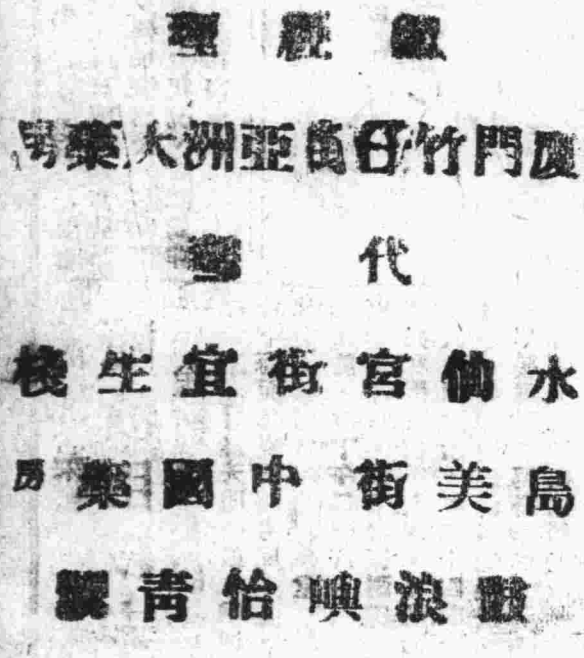 總經理
廈門竹仔街亞洲大藥房
代理
水仙宮街宜生棧
島美街中國藥房
鼓浪嶼怡青